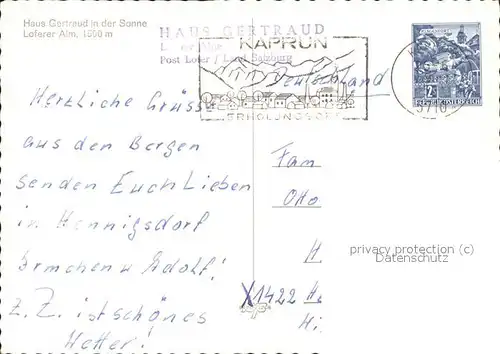 Haus Gertraud in der Sonne
Loferer Alm, 1600 m
HAUS GERTRAUD
Post Lofer / Land Salzburg
KAPRUN
ERHOLUNGSORT
REPUBLIK ÖSTERREICH
Deutschland
Herzliche Grüsse
aus den Bergen
senden Euch Lieben
in Hennigsdorf
Irmchen u Adolf!
z. Z. ist schönes
Wetter!
Fam
Otto
H.
X1422 He
Hi
privacy protection (c)
Datenschutz